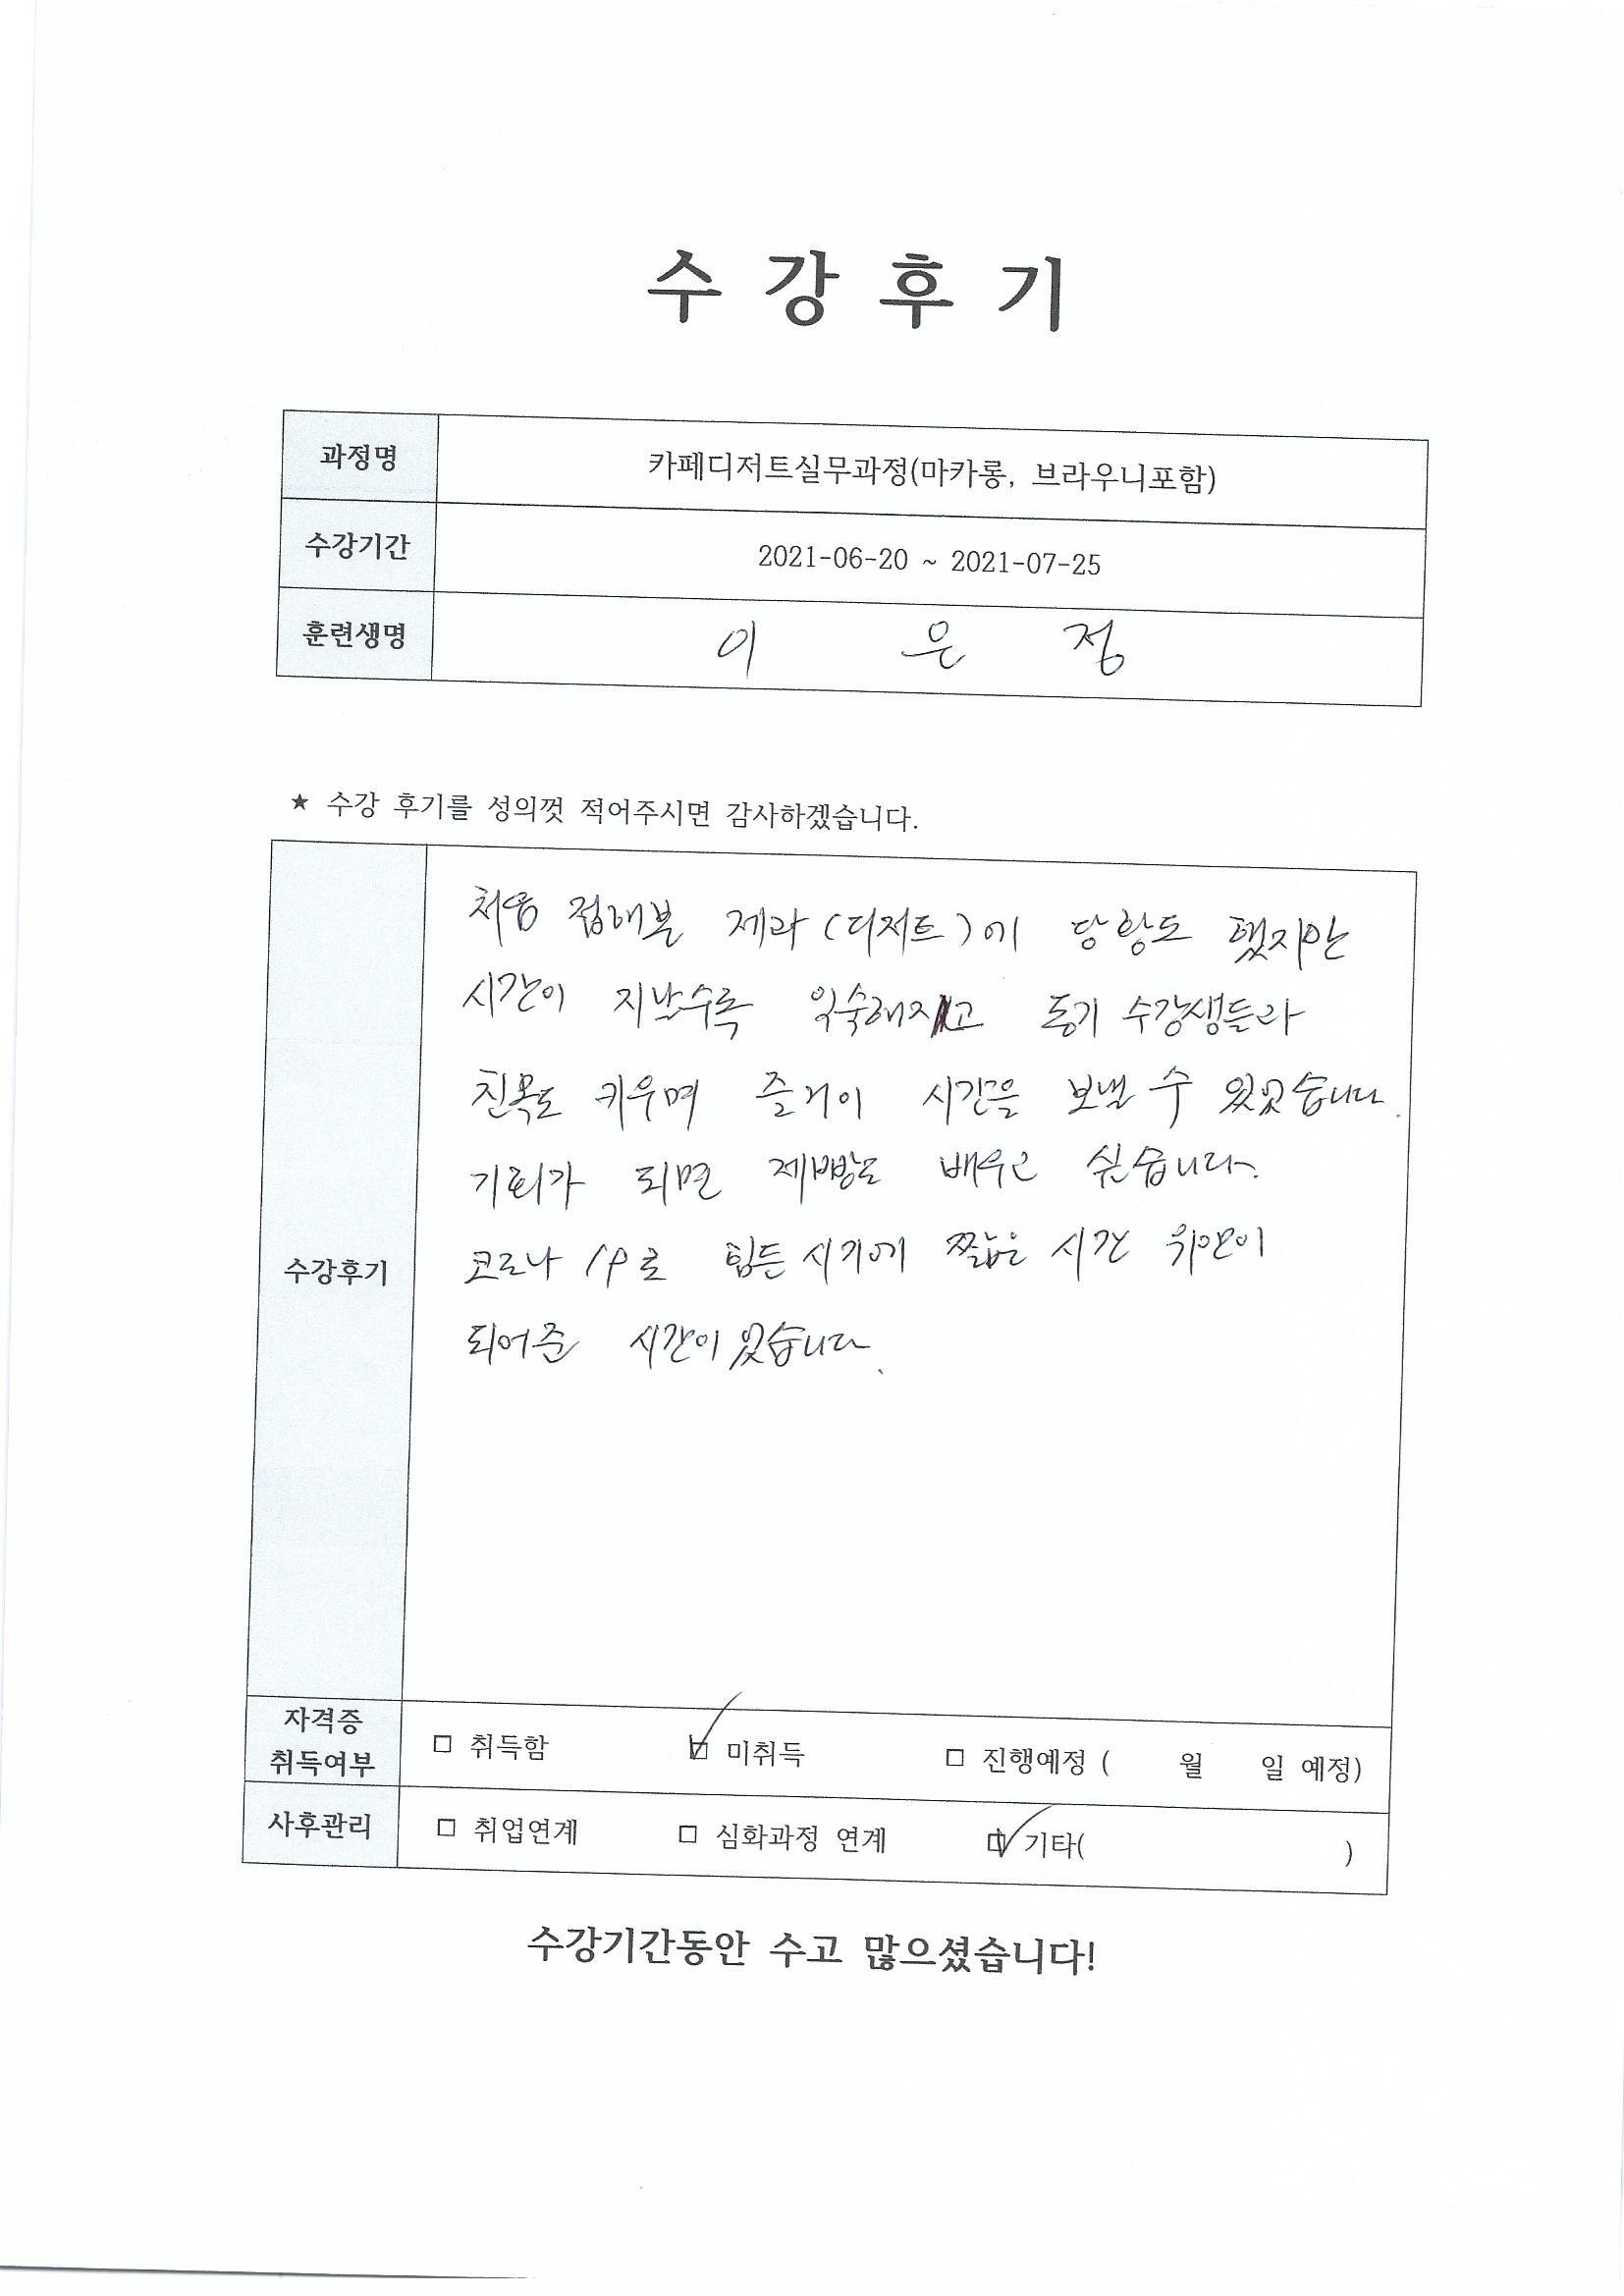 수 강 후 기
과정명 카페디저트실무과정(마카롱, 브라우니포함)
수강기간 2021-06-20 ~ 2021-07-25
훈련생명 이 은 정
★ 수강 후기를 성의껏 적어주시면 감사하겠습니다.
수강후기
처음 접해본 제과(디저트)에 당황도 했지만
시간이 지날수록 익숙해지고 동기 수강생들과
친목도 키우며 즐거이 시간을 보낼 수 있었습니다.
기회가 되면 제빵도 배우고 싶습니다.
코로나 19로 힘든 시기에 짧은 시간 위안이
되어준 시간이었습니다.
자격증 취득여부 □ 취득함 ☑ 미취득 □ 진행예정 ( 월 일 예정)
사후관리 □ 취업연계 □ 심화과정 연계 ☑ 기타( )
수강기간동안 수고 많으셨습니다!